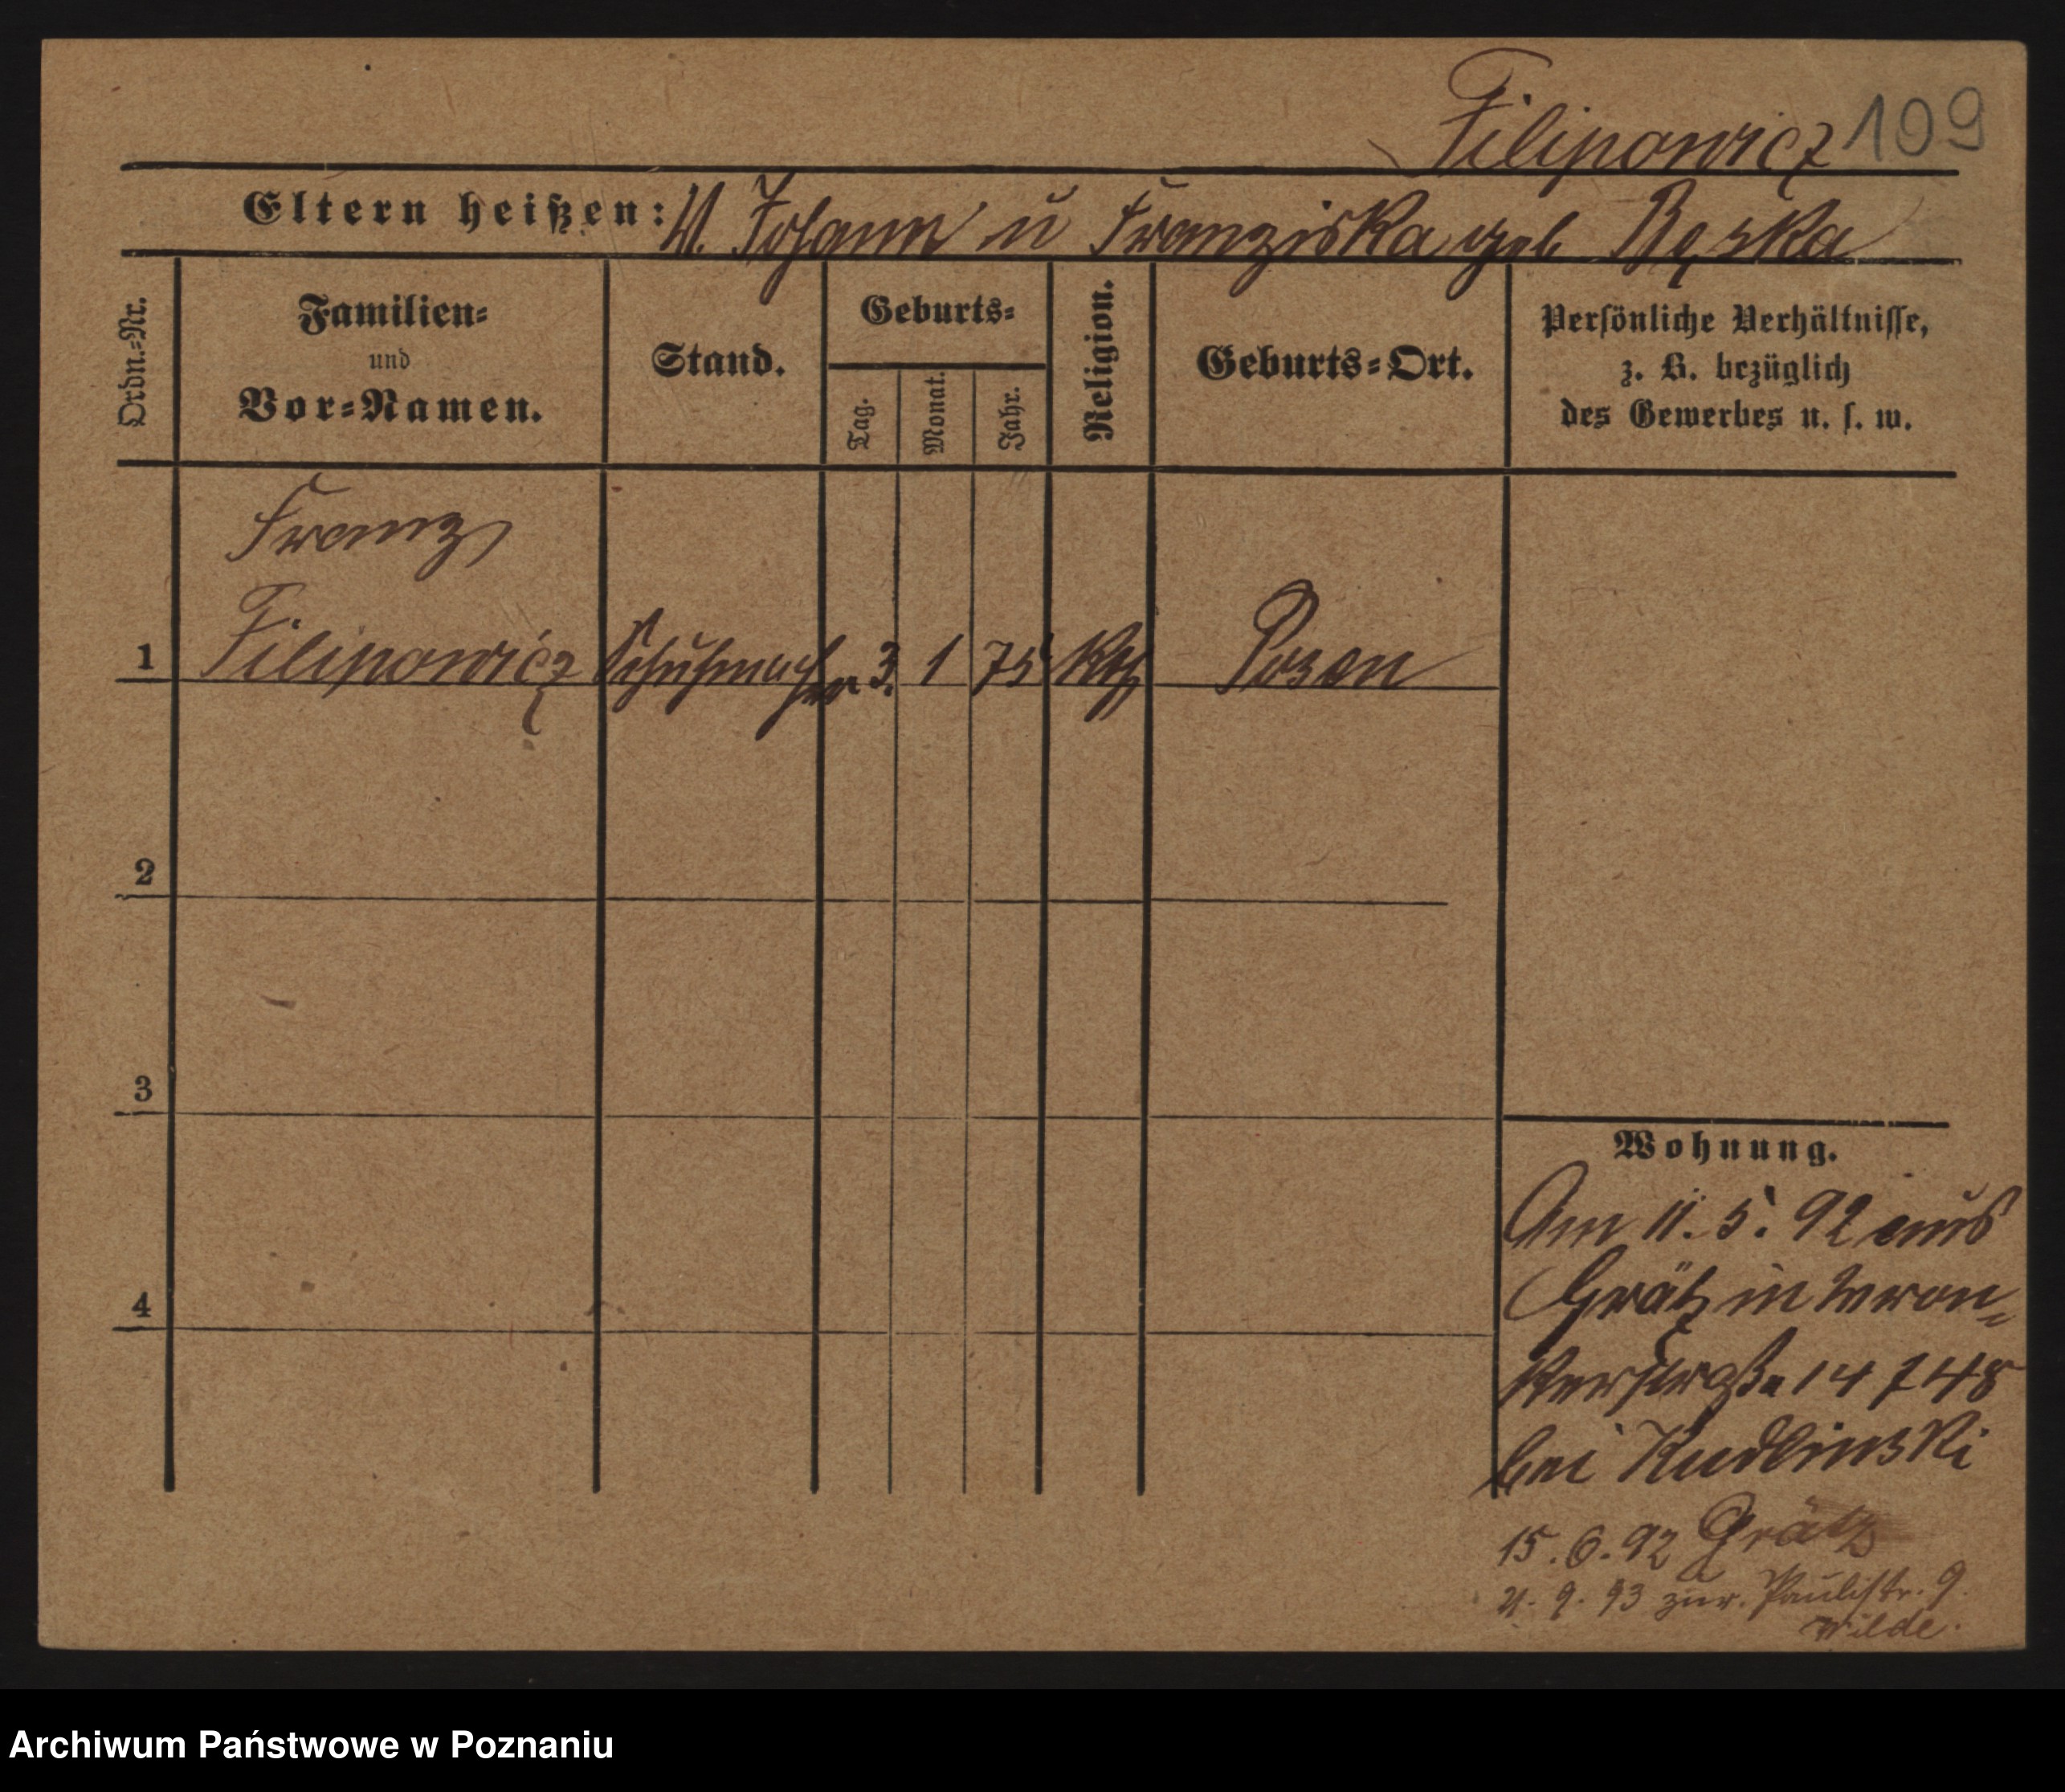 Filipowicz 109
Eltern heißen: V. Johann u Franziska geb Ręska
Ordn.=Nr.
Familien=
und
Vor=Namen.
Stand.
Geburts=
Tag.
Monat.
Jahr.
Religion.
Geburts=Ort.
Persönliche Verhältnisse,
z. B. bezüglich
des Gewerbes u. s. w.
Franz
1 Filipowicz Schuhmacher 3. 1 75 kth Posen
2
3
4
Wohnung.
Am 11. 5. 92 aus
Grätz in Wron=
kerstraße 14
bei Kudlinski
15. 6. 92 Grätz
9. 93 zur. Paulistr. 9.
Wilde.
Archiwum Państwowe w Poznaniu